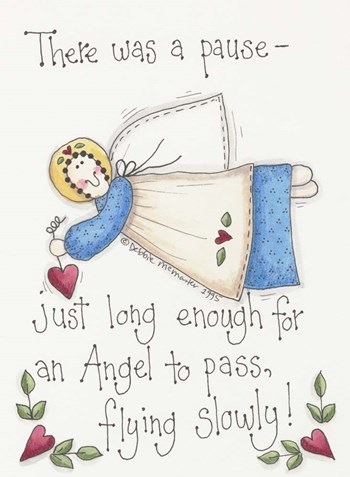 There was a pause –
© Debbie Mumm 1995
just long enough for
an Angel to pass,
flying slowly!